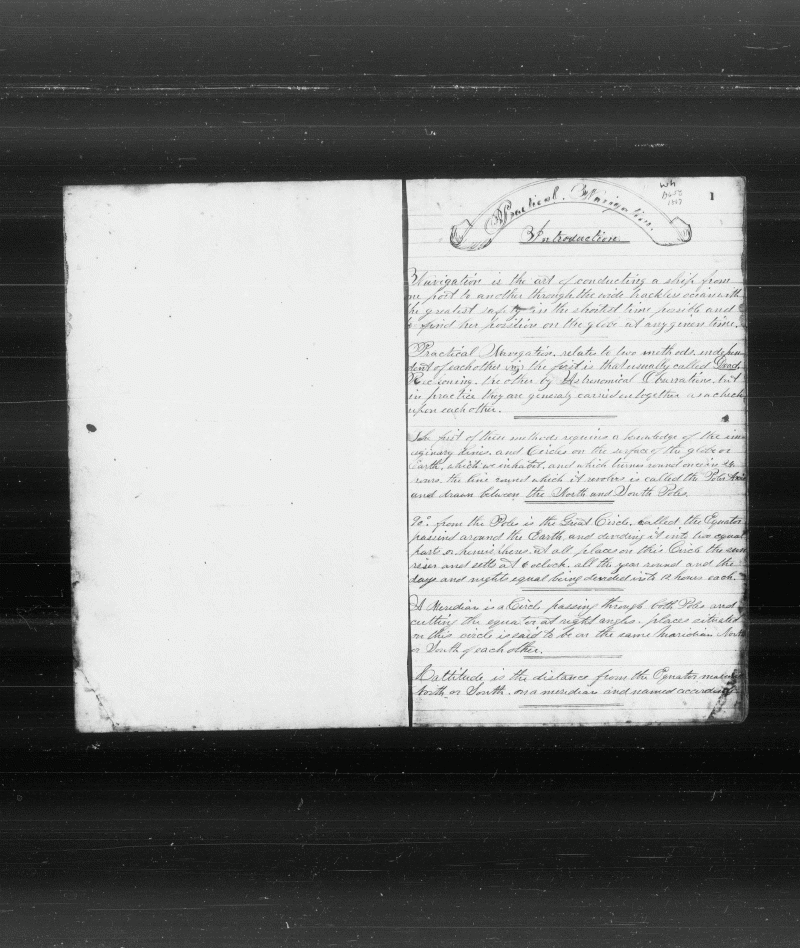 Practical. Navigation.
1
Introduction
Navigation is the art of conducting a ship from
one port to another through the wide trackless ocean with
the greatest safety in the shortest time possible and
to find her position on the globe at any given time.
Practical Navigation, relates to two methods, indepen
dent of each other viz, the first is that usually called Dead
Reckoning, the other by Astronomical Observations, but
in practice they are generaly carried on together as a check
upon each other.
The first of these methods requires a knowledge of the im
aginary lines. and Circles on the surface of the globe or
Earth, which we inhabit, and which turns round once in 24
the line round which it revolves is called the Polar Axis
and drawn between the North and South Poles.
90° from the Poles is the Great Circle, called the Equator
passing around the Earth, and dividing it into two equal
parts or hemispheres. At all places on this Circle the sun
rises and setts at 6 oclock, all the year round and the
days and nights equal being divided into 12 hours each.
A Meridian is a Circle passing through both Poles and
cutting the equator at right angles. places situated
on this circle is said to be on the same Meridian North
or South of each other.
Lattitude, is the distance from the Equator
North or South. on a meridian and named according